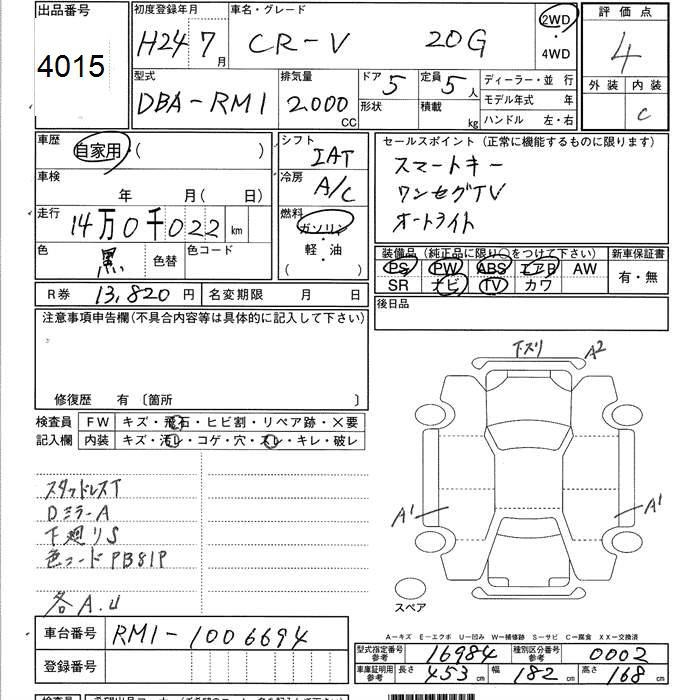 出品番号 4015
初度登録年月 H24 7月
車名・グレード CR-V 20G
2WD 4WD
評価点 4
外装 内装 C
型式 DBA-RM1
排気量 2000 CC
ドア 5 形状
定員 5人 積載 kg
ディーラー・並 行
モデル年式 年
ハンドル 左・右
車歴 自家用・( )
車検 年 月( 日)
走行 14万0千022 km
色 黒 色替 色コード
シフト IAT
冷房 A/C
燃料 ガソリン・軽・油 ( )
セールスポイント (正常に機能するものに限ります)
スマートキー
ワンセグTV
オートライト
装備品 (純正品に限り○をつけて下さい) 新車保証書
PS PW ABS エアB AW 有・無
SR ナビ TV カワ
R券 13,820円 名変期限 月 日
後日品
注意事項申告欄(不具合内容等は具体的に記入して下さい)
修復歴 有 〔箇所 〕
検査員記入欄
FW キズ・飛石・ヒビ割・リペア跡・×要
内装 キズ・汚レ・コゲ・穴・スレ・キレ・破レ
スタッドレスT
DミラーA
下廻りS
色コードPB81P
各A.U
下スリ A2
A1 A1
スペア
A-キズ E-エクボ U-凹み W-補修跡 S-サビ C-腐食 XX-交換済
車台番号 RM1-1006694
登録番号
型式指定番号参考 16984 種別区分番号参考 0002
車庫証明用参考 長さ 453cm 幅 182cm 高さ 168cm